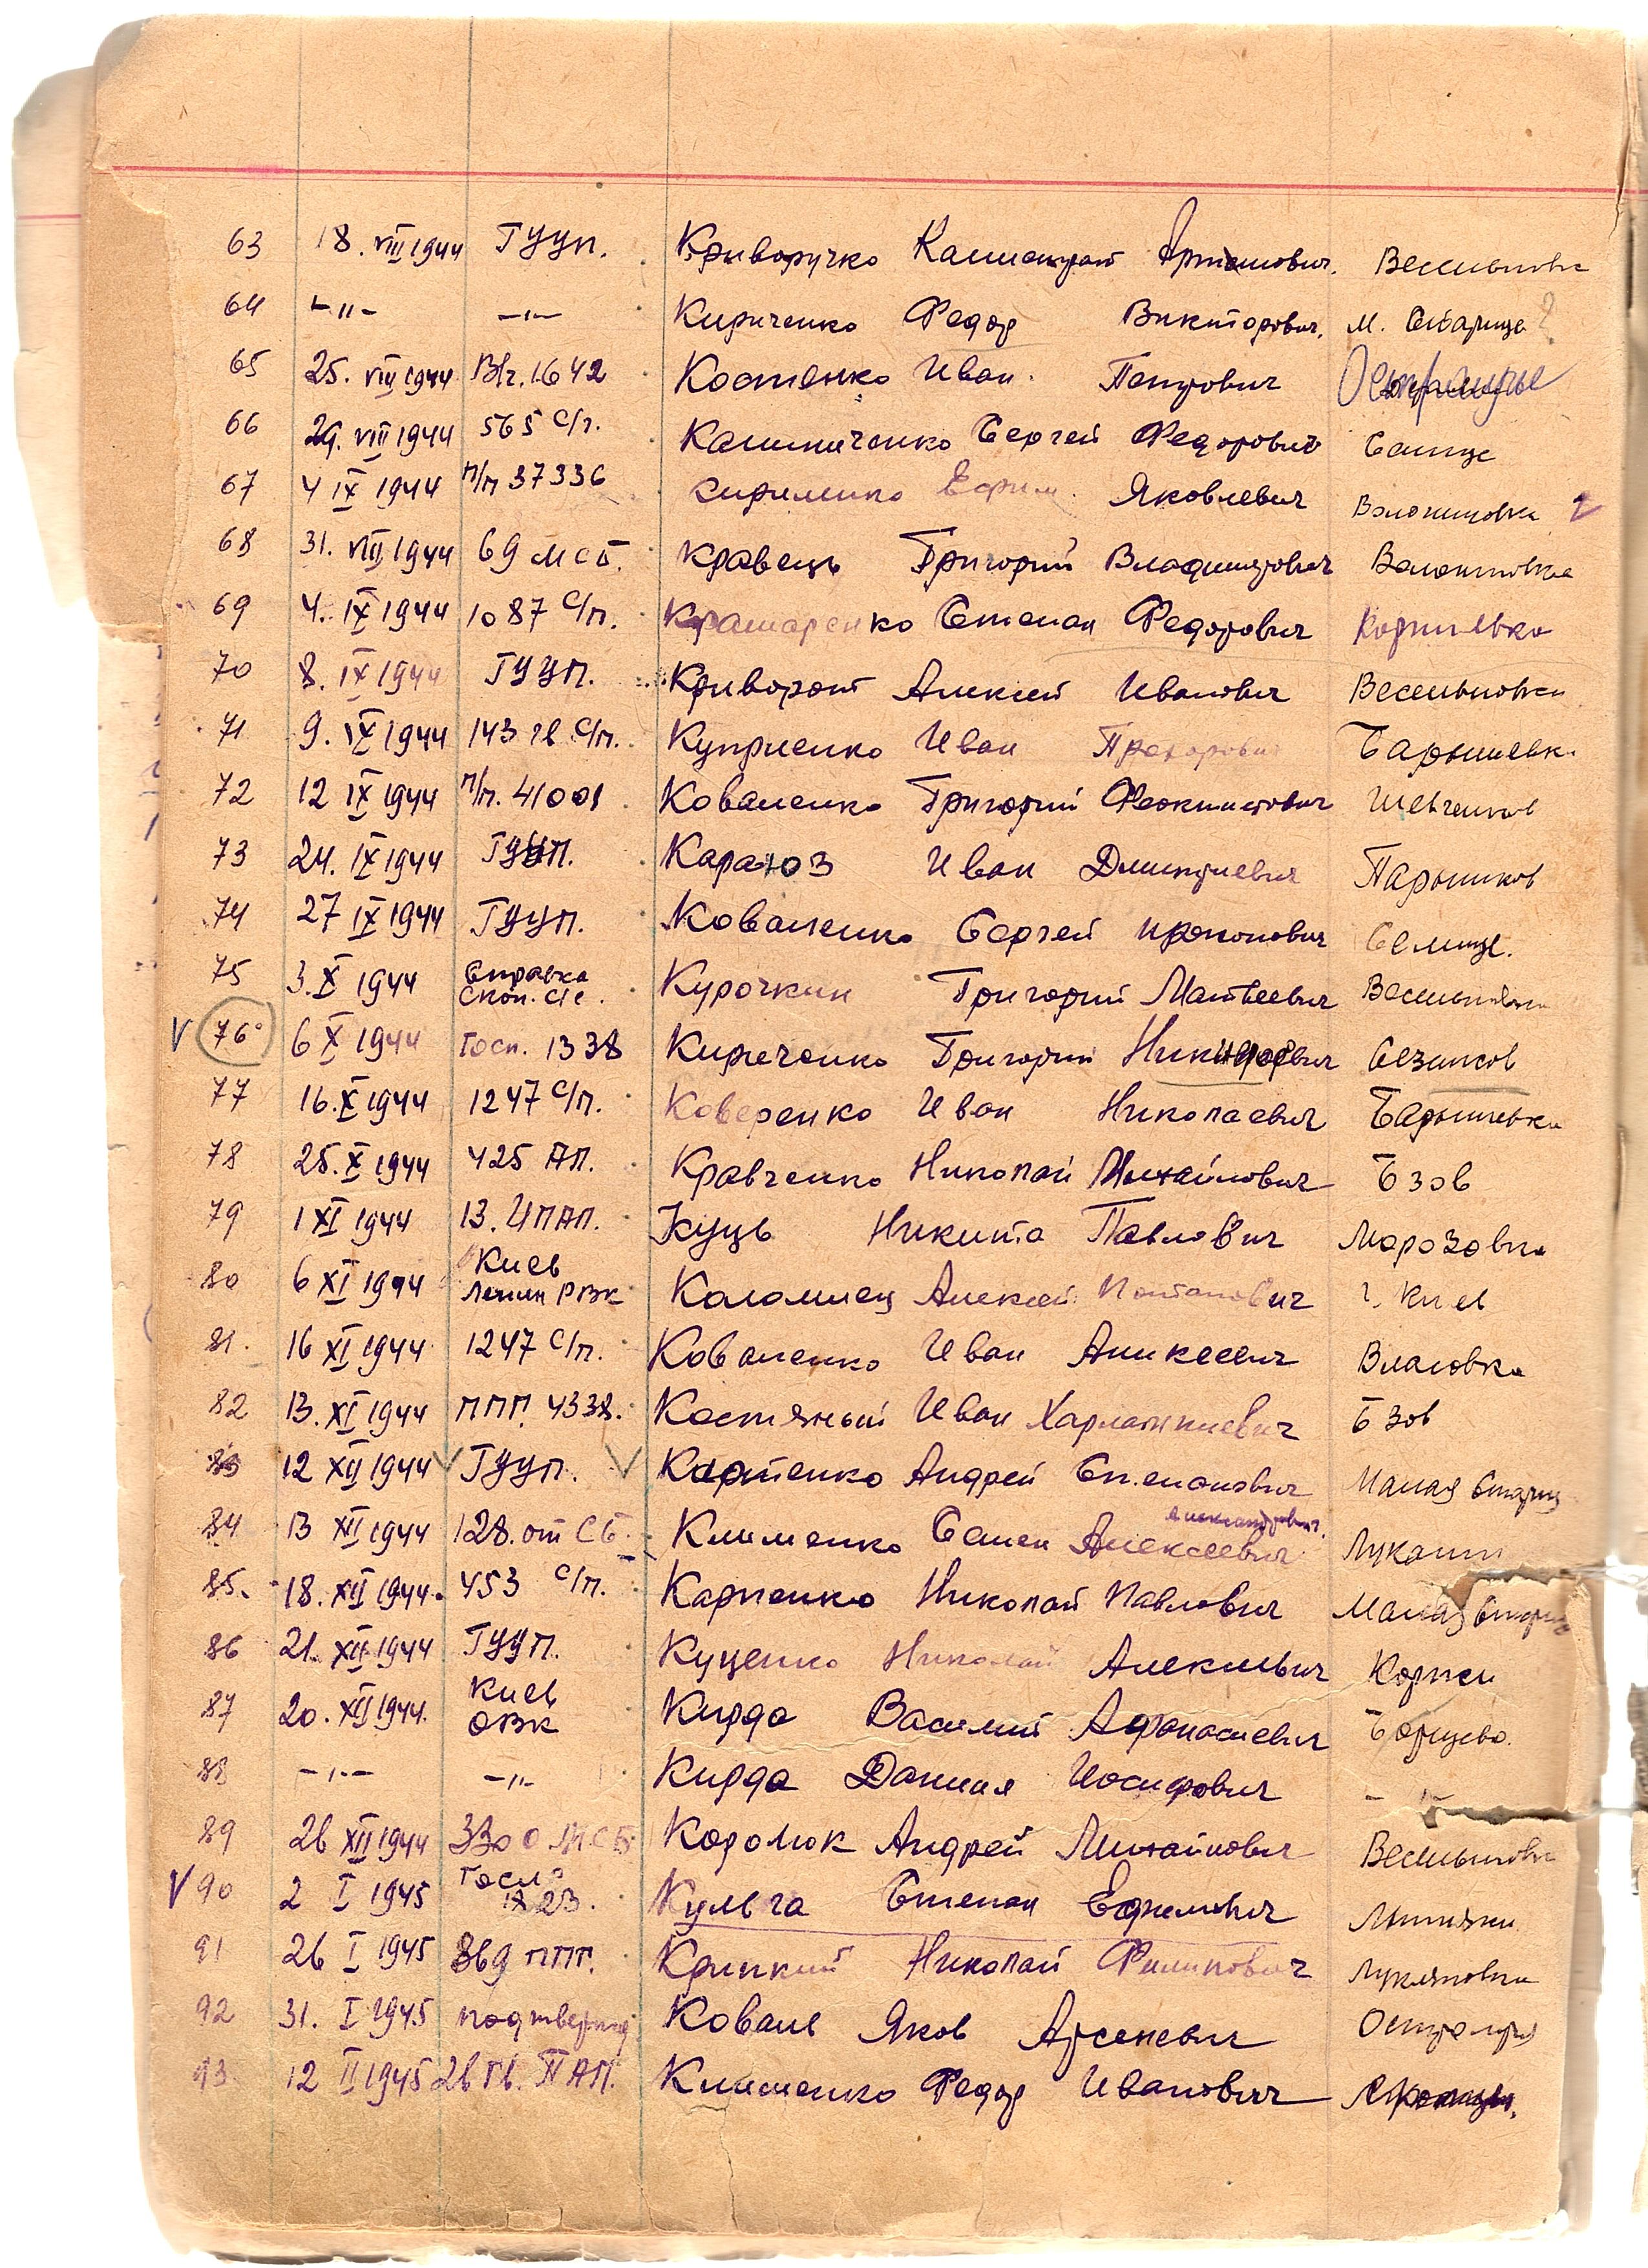 63 18. VIII 1944 ГУУП. Криворучко Артемович. Весели
64 -"- -"- Кириченко Федор Викторович. М. Старица ?
65 25. VIII 1944 В/ч. 1642 Костенко Иван Петрович
66 29. VIII 1944 565 С/п. Калиниченко Сергей Федорович Селище
67 4 IX 1944 П/п 37336 Кириленко Ефим Яковлевич Волошиновка
68 31. VIII 1944 69 МСБ. Кравець Григорий Владимирович Волошиновка
69 4. IX 1944 1087 С/п. Крамаренко Степан Федорович
70 8. IX 1944 ГУУП. Криворот Алексей Иванович
71 9. IX 1944 143 гв С/п. Куприенко Иван Прохорович Барышевк.
72 12 IX 1944 П/п. 41001 Коваленко Григорий Феоктистович
73 24. IX 1944 ГУУП. Караюз Иван Дмитриевич Парышков
74 27 IX 1944 ГУУП. Коваленко Сергей Прокопович Селище.
75 3. X 1944 Справка Курочкин Григорий Матвеевич
V 76 6 X 1944 Госп. 1338 Киреченко Григорий Никифорович Сезинков
77 16. X 1944 1247 С/п. Коверенко Иван Николаевич Барышевка
78 25. X 1944 425 АП. Кравченко Николай Михайлович Бзов
79 1 XI 1944 13. ИПАП. Куць Никита Павлович Морозовка
80 6 XI 1944 Киев Ленин РВК Коломиец Алексей Потапович г. Киев
81. 16 XI 1944 1247 С/п. Коваленко Иван Аликсеевич Власовка
82 13. XI 1944 ППГ 4338. Костяный Иван Харлампиевич Бзов
83 12 XII 1944 ГУУП. Карпенко Андрей Степанович Малая Стариц
Александрович.
84 13 XII 1944 128. от СБ. Клименко Семен Алексеевич
85. 18. XII 1944. 453 С/п. Карпенко Николай Павлович Малая
86 21. XII 1944 ГУУП. Куценко Николай Коржи
87 20. XII 1944. Киев ОВК Кирда Василий Афанасиевич Борщево.
88 -"- -"- Кирда Данил Иосифович - "-
89 26 XII 1944 МСБ Королюк Андрей Михайлович
V 90 2 I 1945 Госп Кульга Степан Ефимович
91 26 I 1945 869 ППГ. Крипкий Николай Филипович Лукяновка
92 31. I 1945 Коваль Яков Арсеневич
93 12 II 1945 26 Гв. ПАП. Клименко Федор Иванович